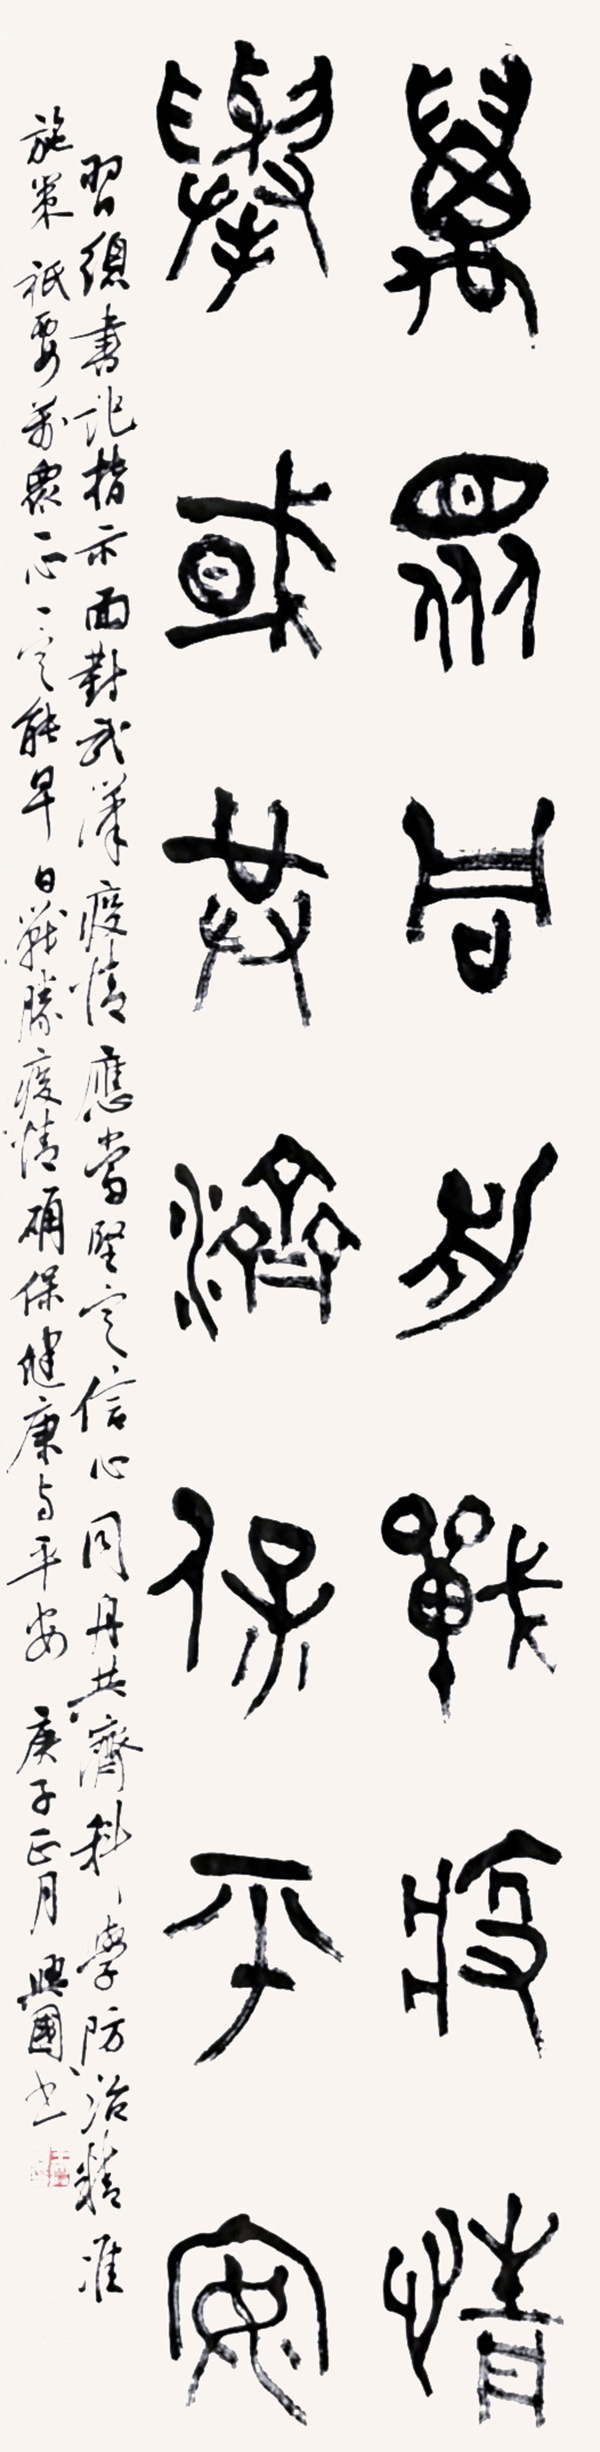 萬眾同力戰疫情
舉國共濟保平安
習總書記指示面對武漢疫情應當堅定信心同舟共濟科學防治精準
施策祇要萬眾一心一定能早日戰勝疫情确保健康与平安 庚子正月 興國书